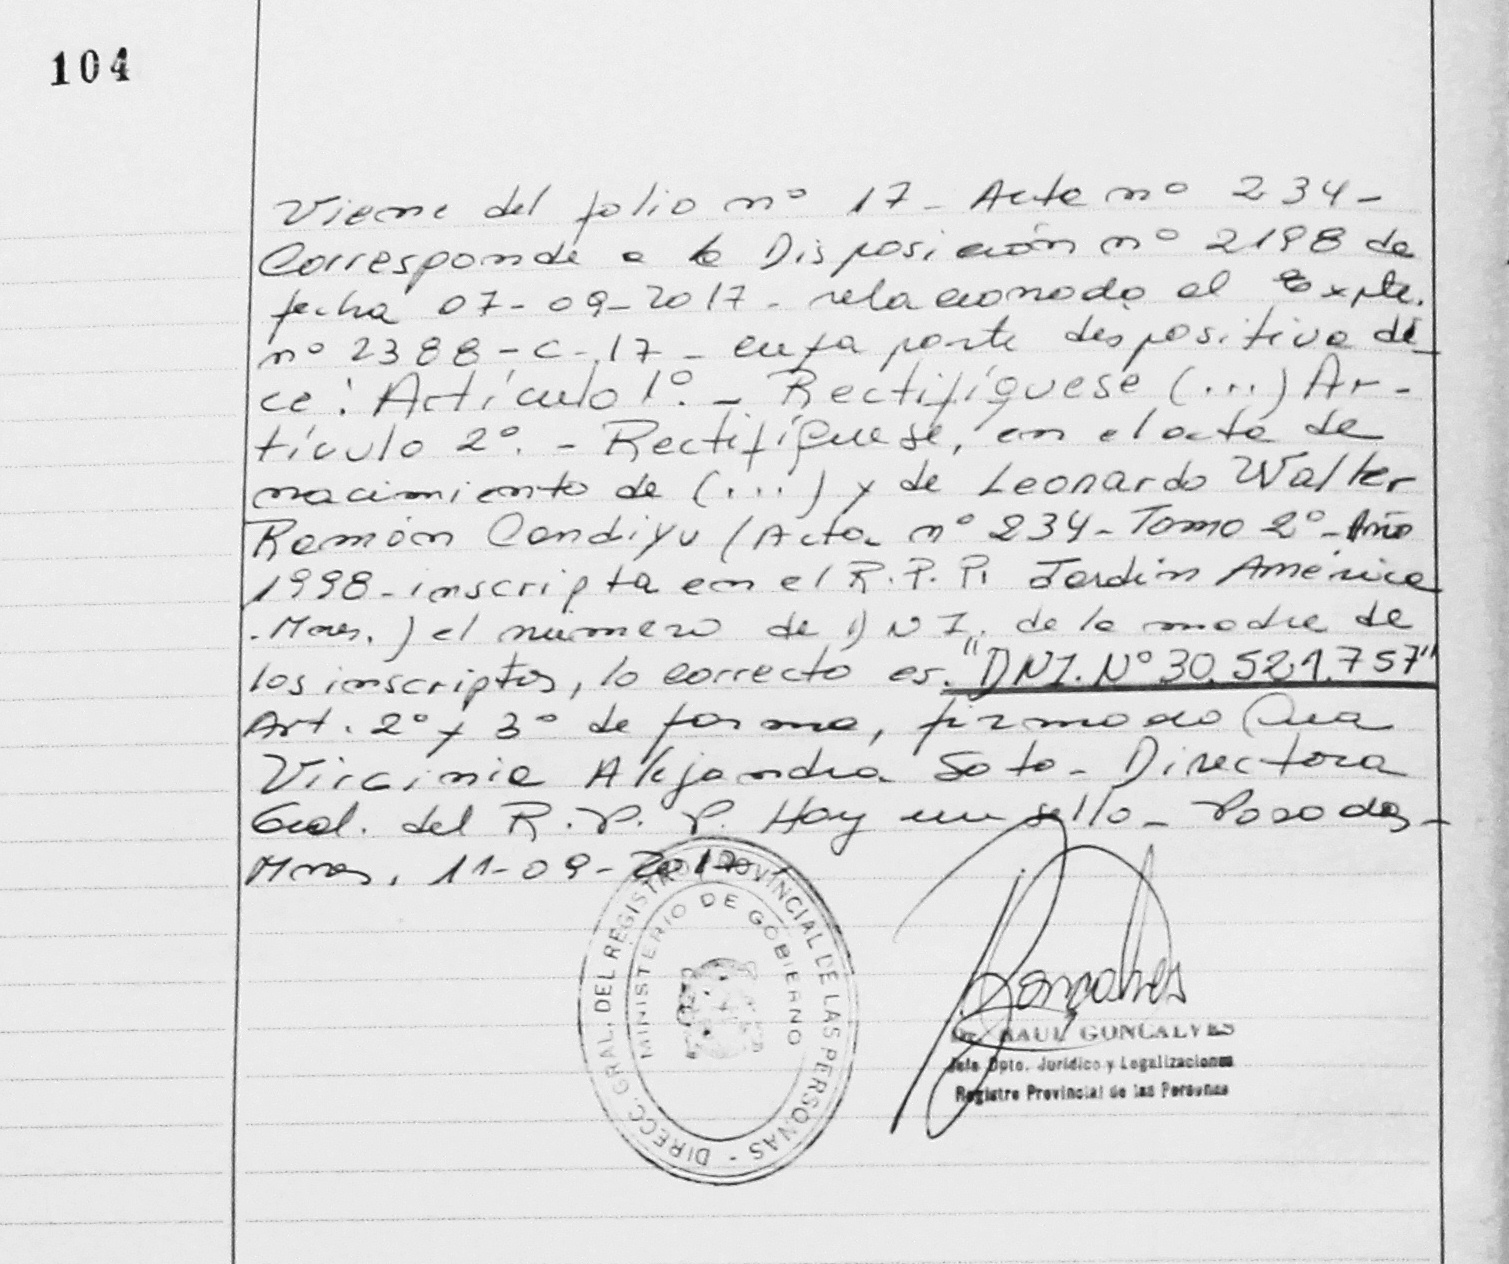 104
Viene del folio nº 17 - Acta nº 234 -
Corresponde a la Disposición nº 2198 de
fecha 07-09-2017 - relacionado al Expte.
nº 2388-C-17 - cuya parte dispositiva di-
ce: Artículo 1º. - Rectifíquese (...) Ar-
tículo 2º. - Rectifíquese, en el acta de
nacimiento de (...) y de Leonardo Walter
Ramón Candiyu (Acta nº 234 - Tomo 2º - Año
1998 - inscripta en el R.P.P. Jardín América
- Mnes.) el número de DNI. de la madre de
los inscriptos, lo correcto es. "DNI. Nº 30.521.757"
Art. 2º y 3º de forma, firmado Dra
Virginia Alejandra Soto - Directora
Gral. del R.P.P. Hay un sello - Posadas -
Mnes, 11-09-2017.
DIRECC. GRAL. DEL REGISTRO PROVINCIAL DE LAS PERSONAS -
MINISTERIO DE GOBIERNO
Goncalves
Dr. RAUL GONCALVES
Jefe Dpto. Jurídico y Legalizaciones
Registro Provincial de las Personas